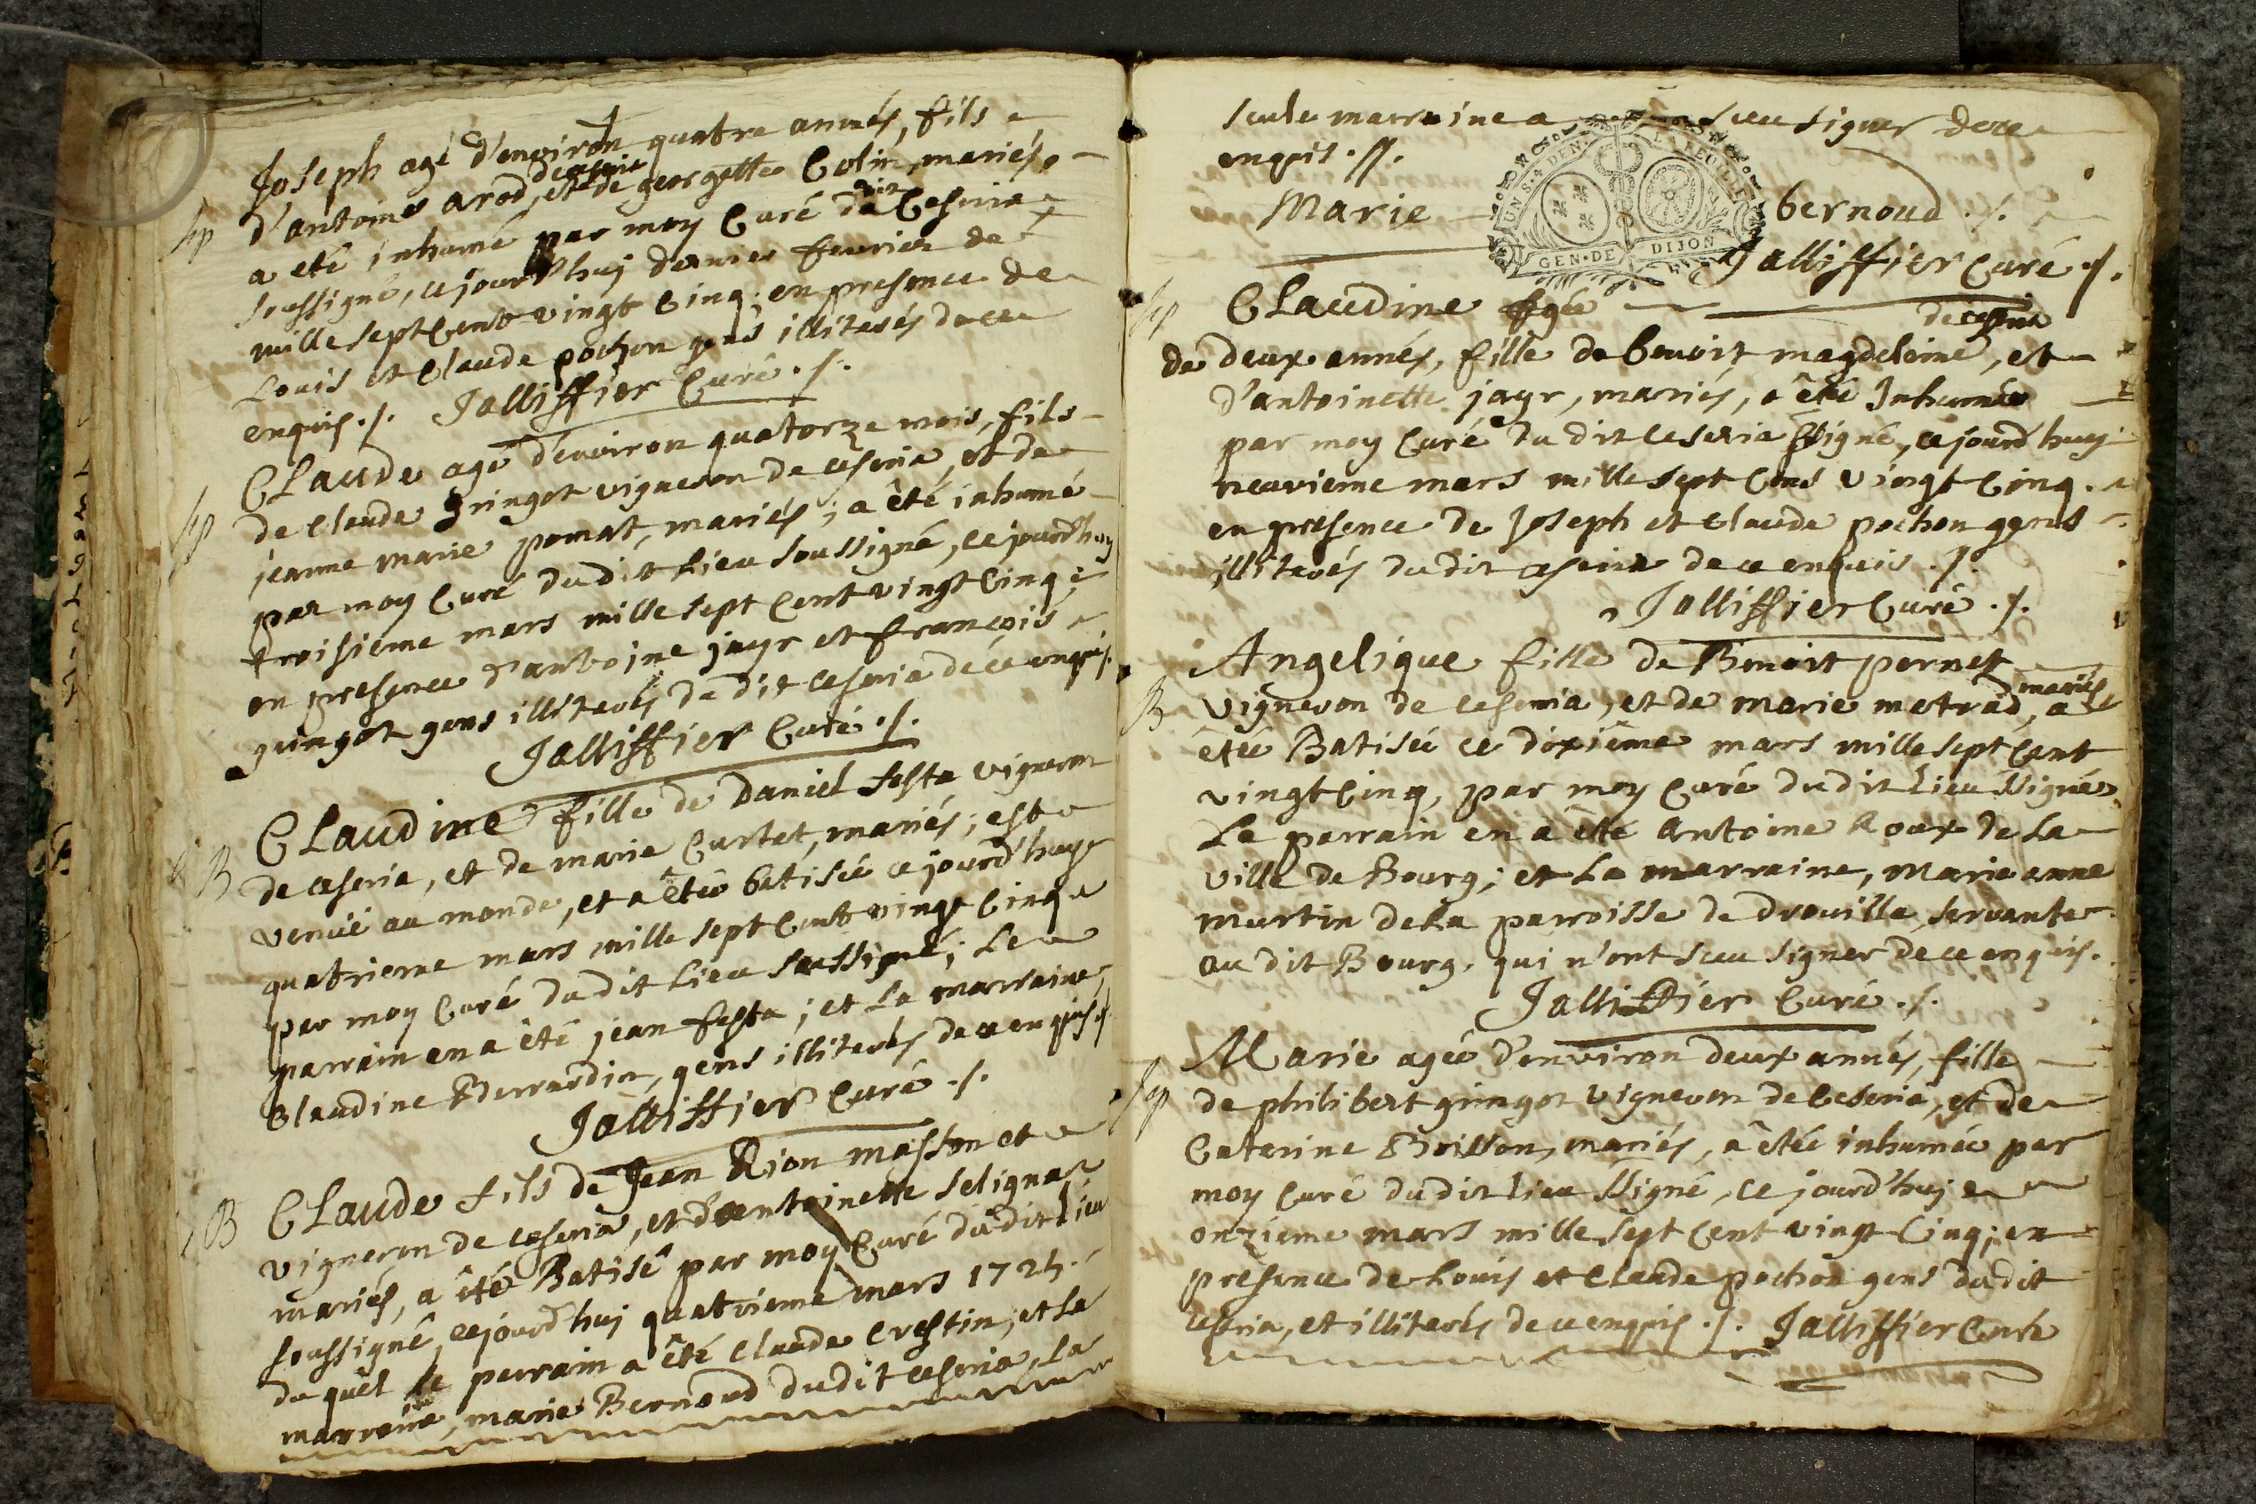 Joseph agé d'environ quatre annés, fils
de ceseria
Sep d'antoine arod, et de georgette Colin, mariés,
a eté inhumé par moy Curé du dit Ceseria
soussigné, cejourd'huy dernier fevrier de
mille sept Cent vingt Cinq; en presence de
Louis et Claude pochon gens illiterés de ce
enquis ./. Jalliffier Curé ./.
CLaude agé d'environ quatorze mois, fils
Sep de Claude gringot vigneron de ceseria, et de
jeanne marie pomat, mariés; a êté inhumé
par moy Curé du dit Lieu soussigné, ce jourd'huy
troisieme mars mille sept Cent vingt Cinq;
en presence d'antoine jayr et françois
gringot gens illiterés du dit ceseria de ce enquis.
Jalliffier Curé ./.
CLaudine fille de Daniel festa vigneron
B de ceseria, et de marie Curtet, mariés; est
venuë au monde, et a êtéé batisée ce jourd'huy
quatrieme mars mille sept Cent vingt Cinq
par moy Curé du dit Lieu soussigné; Le
parrain en a êté jean festa; et La marraine,
Claudine Bernardin, gens illiterés de ce enquis ./.
Jalliffier Curé ./.
B CLaude fils de Jean Rion masson et
vigneron de ceseria, et d'antoinette Seligna
mariés, a êté Batisé par moy Curé du dit Lieu
soussigné, cejourd'huy quatrieme mars 1725.
du quel le parrain a êté Claude Crestin; et La
marreine, marie Bernoud du dit ceseria, La
seule marraine a sceu signer de ce
enquis .//.
Marie bernoud ./.
Jalliffier Curé ./.
Sep CLaudine agée
de ceseria
de deux annés, fille de benoit magdeleine, et
d'antoinette jayr, mariés, a êtéé Inhumée
par moy Curé du dit Ceseria ssigné, ce jourd'huy
neuvieme mars mille sept Cens vingt Cinq.
en presence de Joseph et Claude pochon gens
illiterés du dit ceseria de ce enquis ./.
Jalliffier Curé ./.
Angelique fille de Benoit pernet
mariés
B vigneron de ceseria, et de marie metrad, a
étéé Batisée ce dixiême mars mille sept Cent
vingt Cinq, par moy Curé du dit Lieu ssigné.
Le parrain en a êté antoine Roux de La
ville de Bourg; et La marraine, Marie anne
martin de La parroisse de drouille, servante
au dit Bourg, qui n'ont sceu signer de ce enquis.
Jalliffier Curé ./.
Marie agée d'environ deux annés, fille
Sep de philibert gringot vigneron de Ceseria, et de
Caterine Boisson, mariés, a êtéé inhumée par
moy Curé du dit Lieu ssigné, ce jourd'huy
onzieme mars mille sept Cent vingt Cinq; en
presence de Louis et Claude pochon gens du dit
ceseria, et illiterés de ce enquis ./. Jalliffier Curé
GEN·DE DIJON